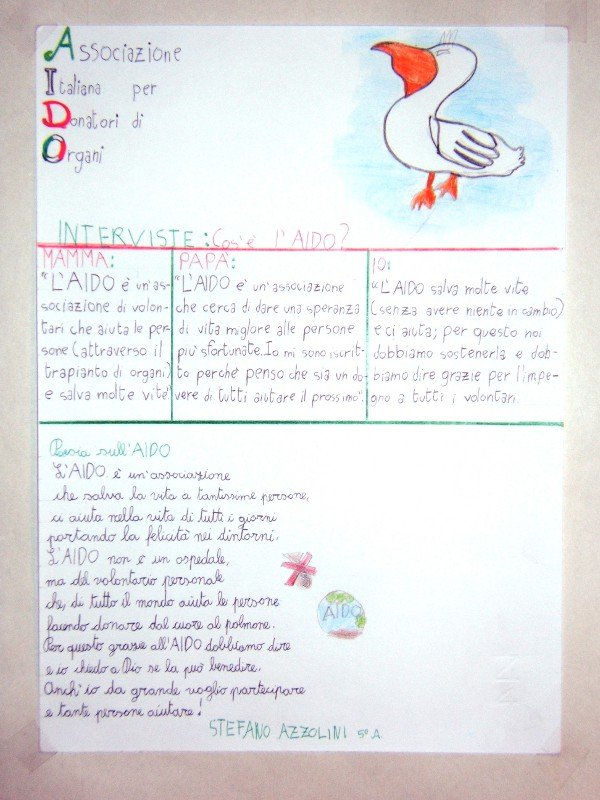 Associazione
Italiana per
Donatori di
Organi
INTERVISTE: Cos'è l'AIDO?
MAMMA:
"L'AIDO è un'as-
sociazione di volon-
tari che aiuta le per-
sone (attraverso il
trapianto di organi)
e salva molte vite"
PAPA':
"L'AIDO è un'associazione
che cerca di dare una speranza
di vita migliore alle persone
più sfortunate. Io mi sono iscrit-
to perché penso che sia un do-
vere di tutti aiutare il prossimo".
IO:
"L'AIDO salva molte vite
(senza avere niente in cambio)
e ci aiuta; per questo noi
dobbiamo sostenerla e dob-
biamo dire grazie per l'impe-
gno a tutti i volontari
Poesia sull'AIDO
L'AIDO è un'associazione
che salva la vita a tantissime persone,
ci aiuta nella vita di tutti i giorni
portando la felicità nei dintorni.
L'AIDO non è un ospedale,
ma del volontario personale
che, di tutto il mondo aiuta le persone
facendo donare dal cuore al polmone.
Per questo grazie all'AIDO dobbiamo dire
e io chiedo a Dio se la può benedire.
Anch'io da grande voglio partecipare
e tante persone aiutare!
AIDO
STEFANO AZZOLINI 5° A.